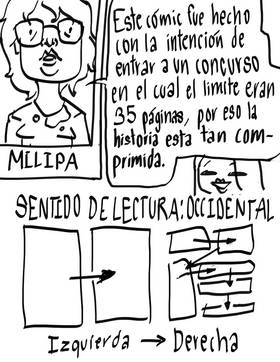 Este cómic fue hecho
con la intención de
entrar a un concurso
en el cual el limite eran
35 páginas, por eso la
historia esta tan com-
primida.
MILIPA
SENTIDO DE LECTURA: OCCIDENTAL
Izquierda → Derecha